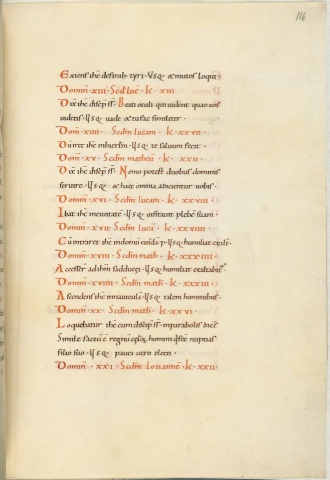 116
Exiens ihc de finib; tyri · Usq; & mutos loqui
Domin̄ · XIII · Sed̄ luc̄ · k · XIII
Dix̄ ihc discip̄ s̄s · Beati oculi qui uident quae uos
uidetis · Usq; uade & tu fac similiter ·
Dom̄ · XIIII · Sedm̄ lucam · k · XXVII ·
Dū iret ihc in hierl̄m · Usq; te saluum fecit ·
Dom̄ · XV · Sedm̄ matheū · k · XXII ·
Dix̄ ihc discip̄ s̄s · Nemo potest duobus dominis
seruire · Usq; & haec omnia adicientur uobis ·
Domin̄ · XVI · Sedm̄ lucam · k · XXVIII ·
Ibat ihc in ciuitatē · Usq; uisitauit plebē suam ·
Domin̄ · XVII · Sedm̄ lucā · k ·
Cū intraret ihc in domū cuidā p̄ · Usq; humiliat exalt̄ ·
Domin̄ · XVIII · Sedm̄ math̄ · k · XXXIII ·
Accesser̄ ad ihm̄ sadducei · Usq; humiliat exaltabit̄ ·
Domin̄ · XVIIII · Sedm̄ math̄ · k · XXXIII ·
Ascendens ihc in nauicula · Usq; talem hominibus ·
Domin̄ · XX · Sedm̄ math̄ · k · XXVI ·
Loquebatur ihc cum discip̄ s̄s · in parabolis dicēs
Simile factū ē regnū celoȝ homini q̄ fec̄ nuptias
filio suo · Usq; pauci uero electi ·
Domin̄ · XXI · Sedm̄ Iohannē · k · XXII ·